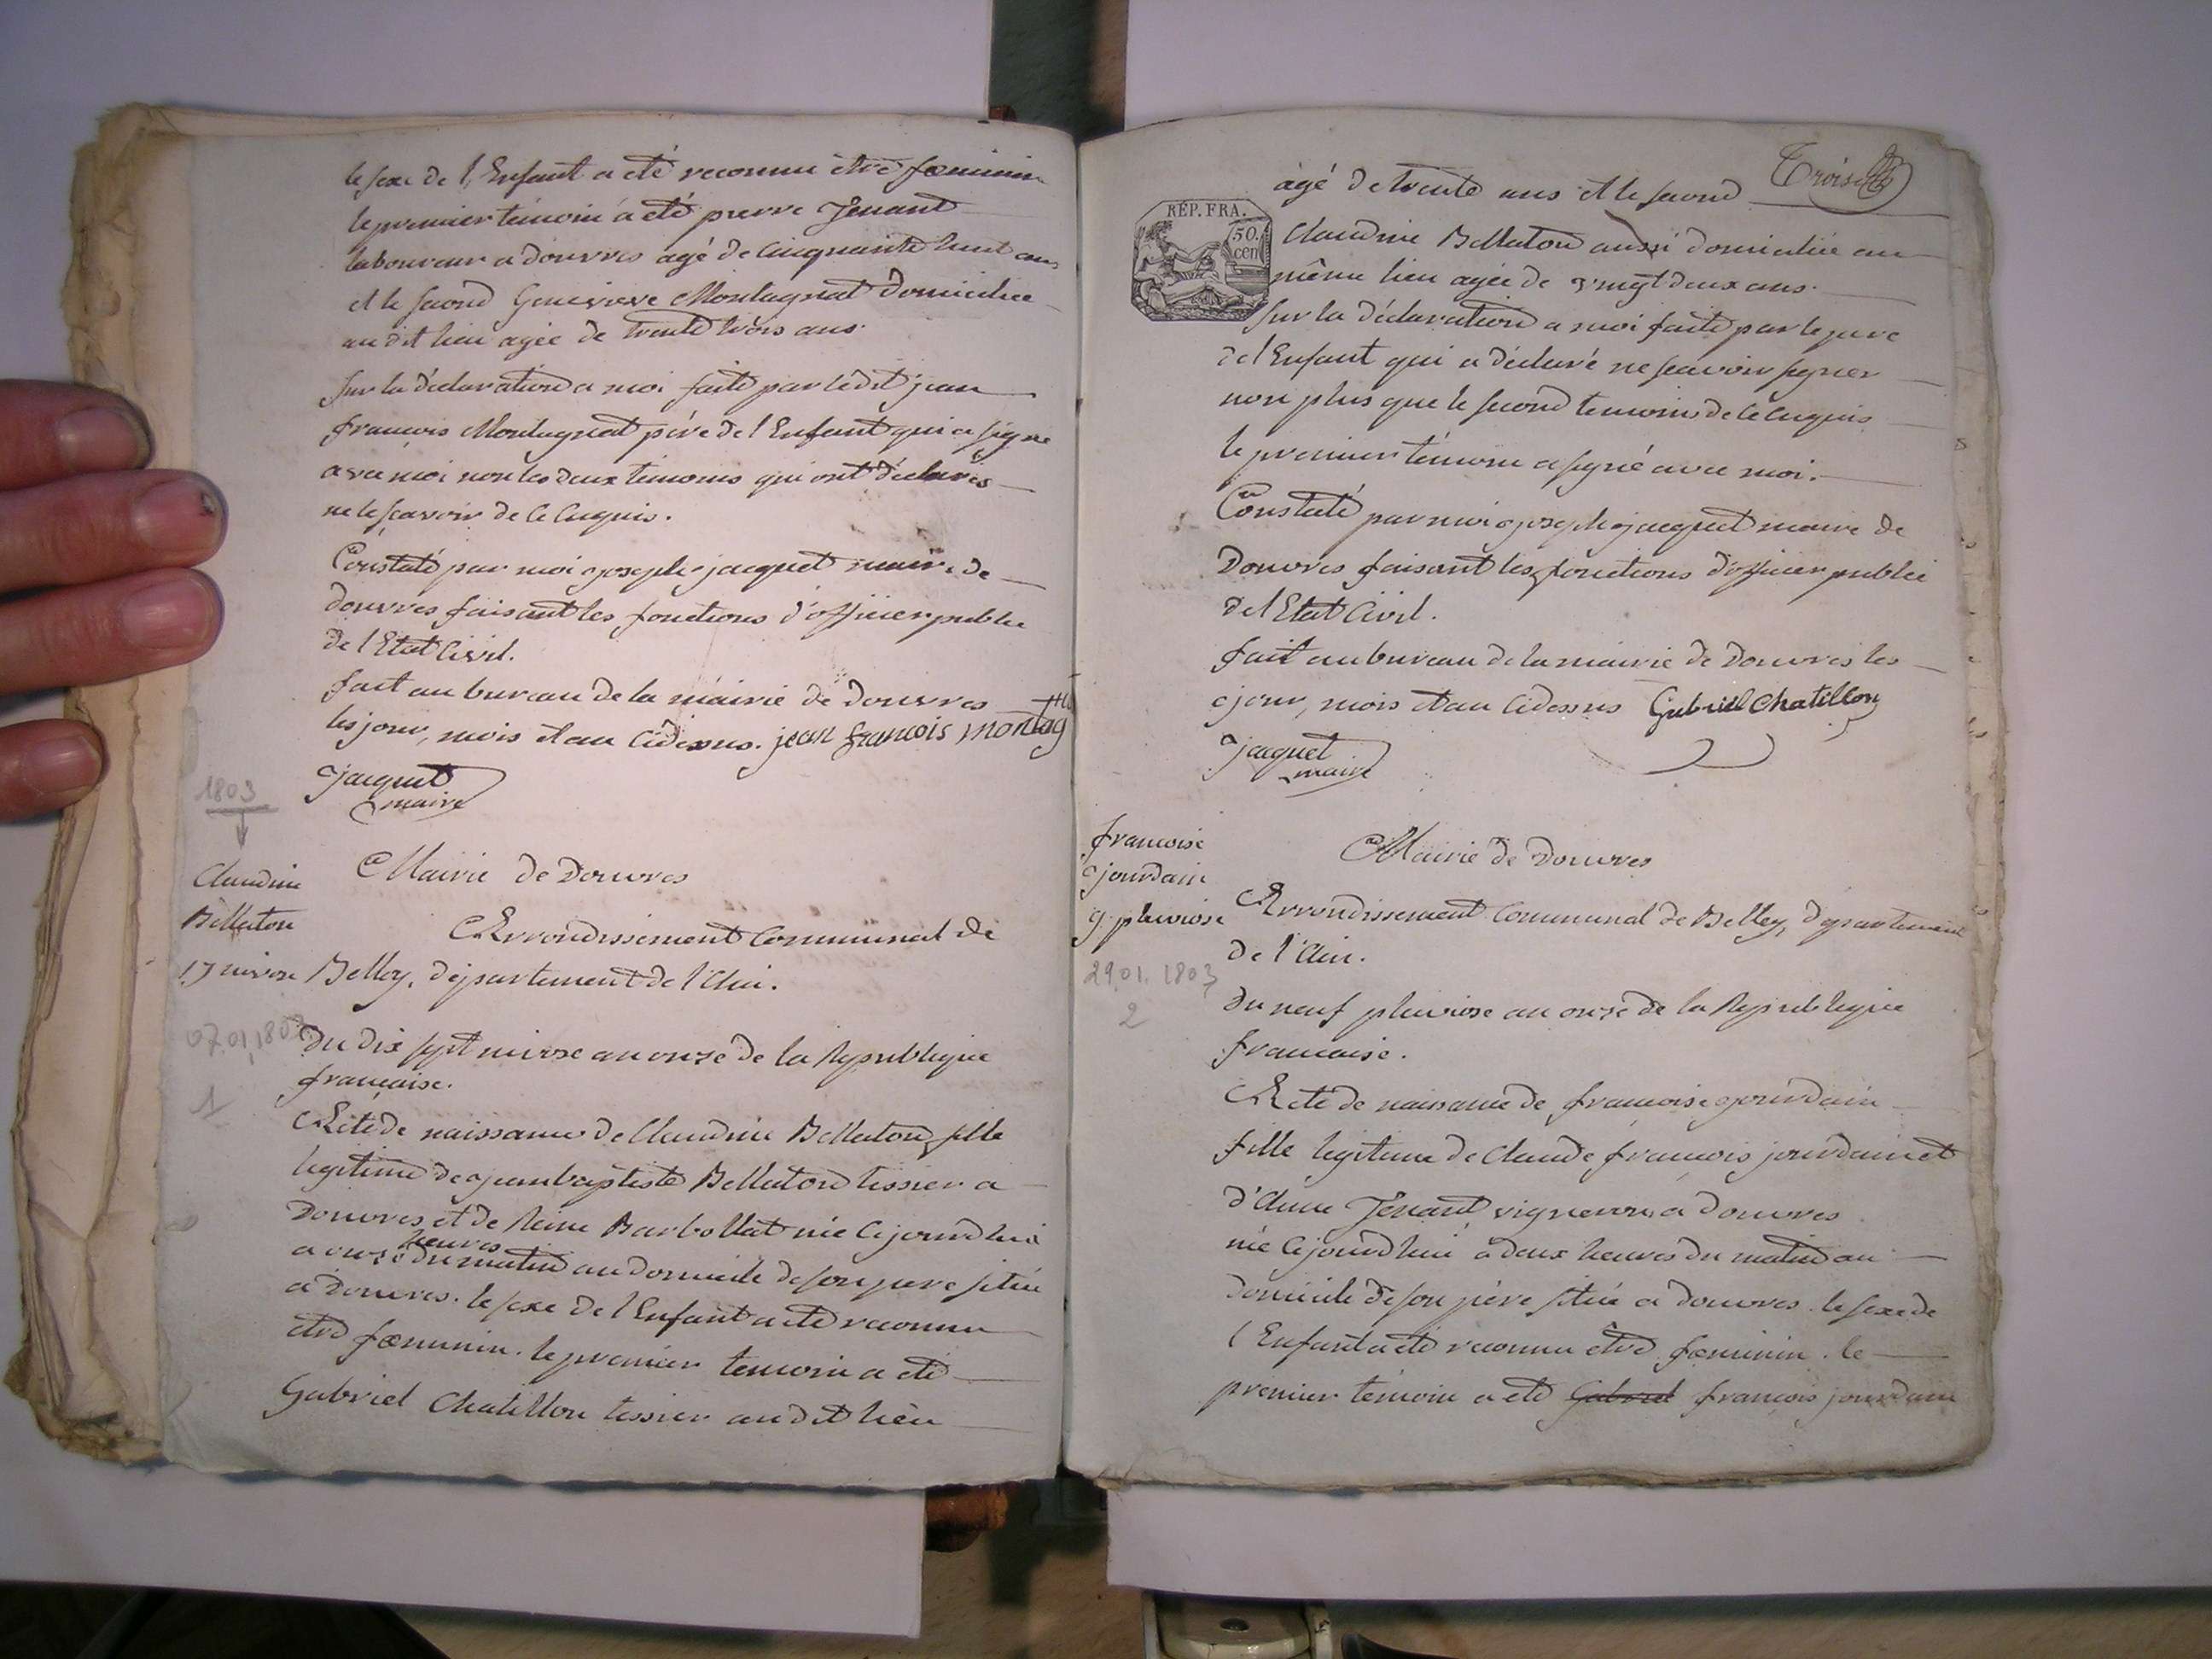 le sexe de l'Enfant a eté reconnu être fœminin
le premier témoin a été pierre Jenant
laboureur a douvres agé de cinquante huit ans
et le second Genevieve Montagnat domiciliee
au dit lieu agée de trente trois ans.
sur la déclaration a moi faite par ledit jean
francois Montagnat pére de l'Enfant qui a signé
avec moi non les deux témoins qui ont déclarés
ne le sçavoir de ce enquis.
Constaté par moi joseph jacquet maire de
douvres faisant les fonctions d'officier public
de l'Etat Civil.
fait au bureau de la mairie de douvres
les jour, mois et an Cidessus. jean francois montag
jacquet
maire
1803
Claudine
Bellaton
17 nivose
07.01.1803
1
Mairie de Douvres
Arrondissement Communal de
Belley, département de l'Ain.
du dix sept nivose an onze de la Republique
française.
Acte de naissance de Claudine Bellaton, fille
legitime de jean baptiste Bellaton tissier a
Douvres et de Reine Barbollat née cejourd'hui
a onze heures du matin au domicile de son pere situé
a Douvres. le sexe de l'Enfant a eté reconnu
etre fœminin. le premier temoin a eté
Gabriel Chatillon tissier au dit lieu
Troise
RÉP. FRA.
50.
cen
àgé de trente ans et le second
Claudine Bellaton aussi domiciliée au
même lieu agée de vingt deux ans.
sur la déclaration a moi faite par le pere
de l'Enfant qui a déclaré ne sçavoir signer
non plus que le second temoin de ce enquis
le premier témoin a signé avec moi.
Constaté par moi joseph jacquet maire de
Douvres faisant les fonctions d'officier public
de l'Etat Civil.
fait au bureau de la mairie de Douvres les
jour, mois et an Cidessus Gabriel Chatillon
jacquet
maire
francoise
jourdain
9 pluviose
29.01.1803
2
Mairie de Douvres
Arrondissement Communal de Belley, département
de l'Ain.
du neuf pluviose an onze de la Republique
francaise.
Acte de naissance de francoise jourdain
fille legitime de Claude francois jourdain et
d'Anne Jenant vigneron a Douvres
née cejourd'hui à deux heures du matin au
domicile de son père situé a douvres. le sexe de
l'Enfant a eté reconnu être fœminin. le
premier témoin a eté Gabriel francois jourdain